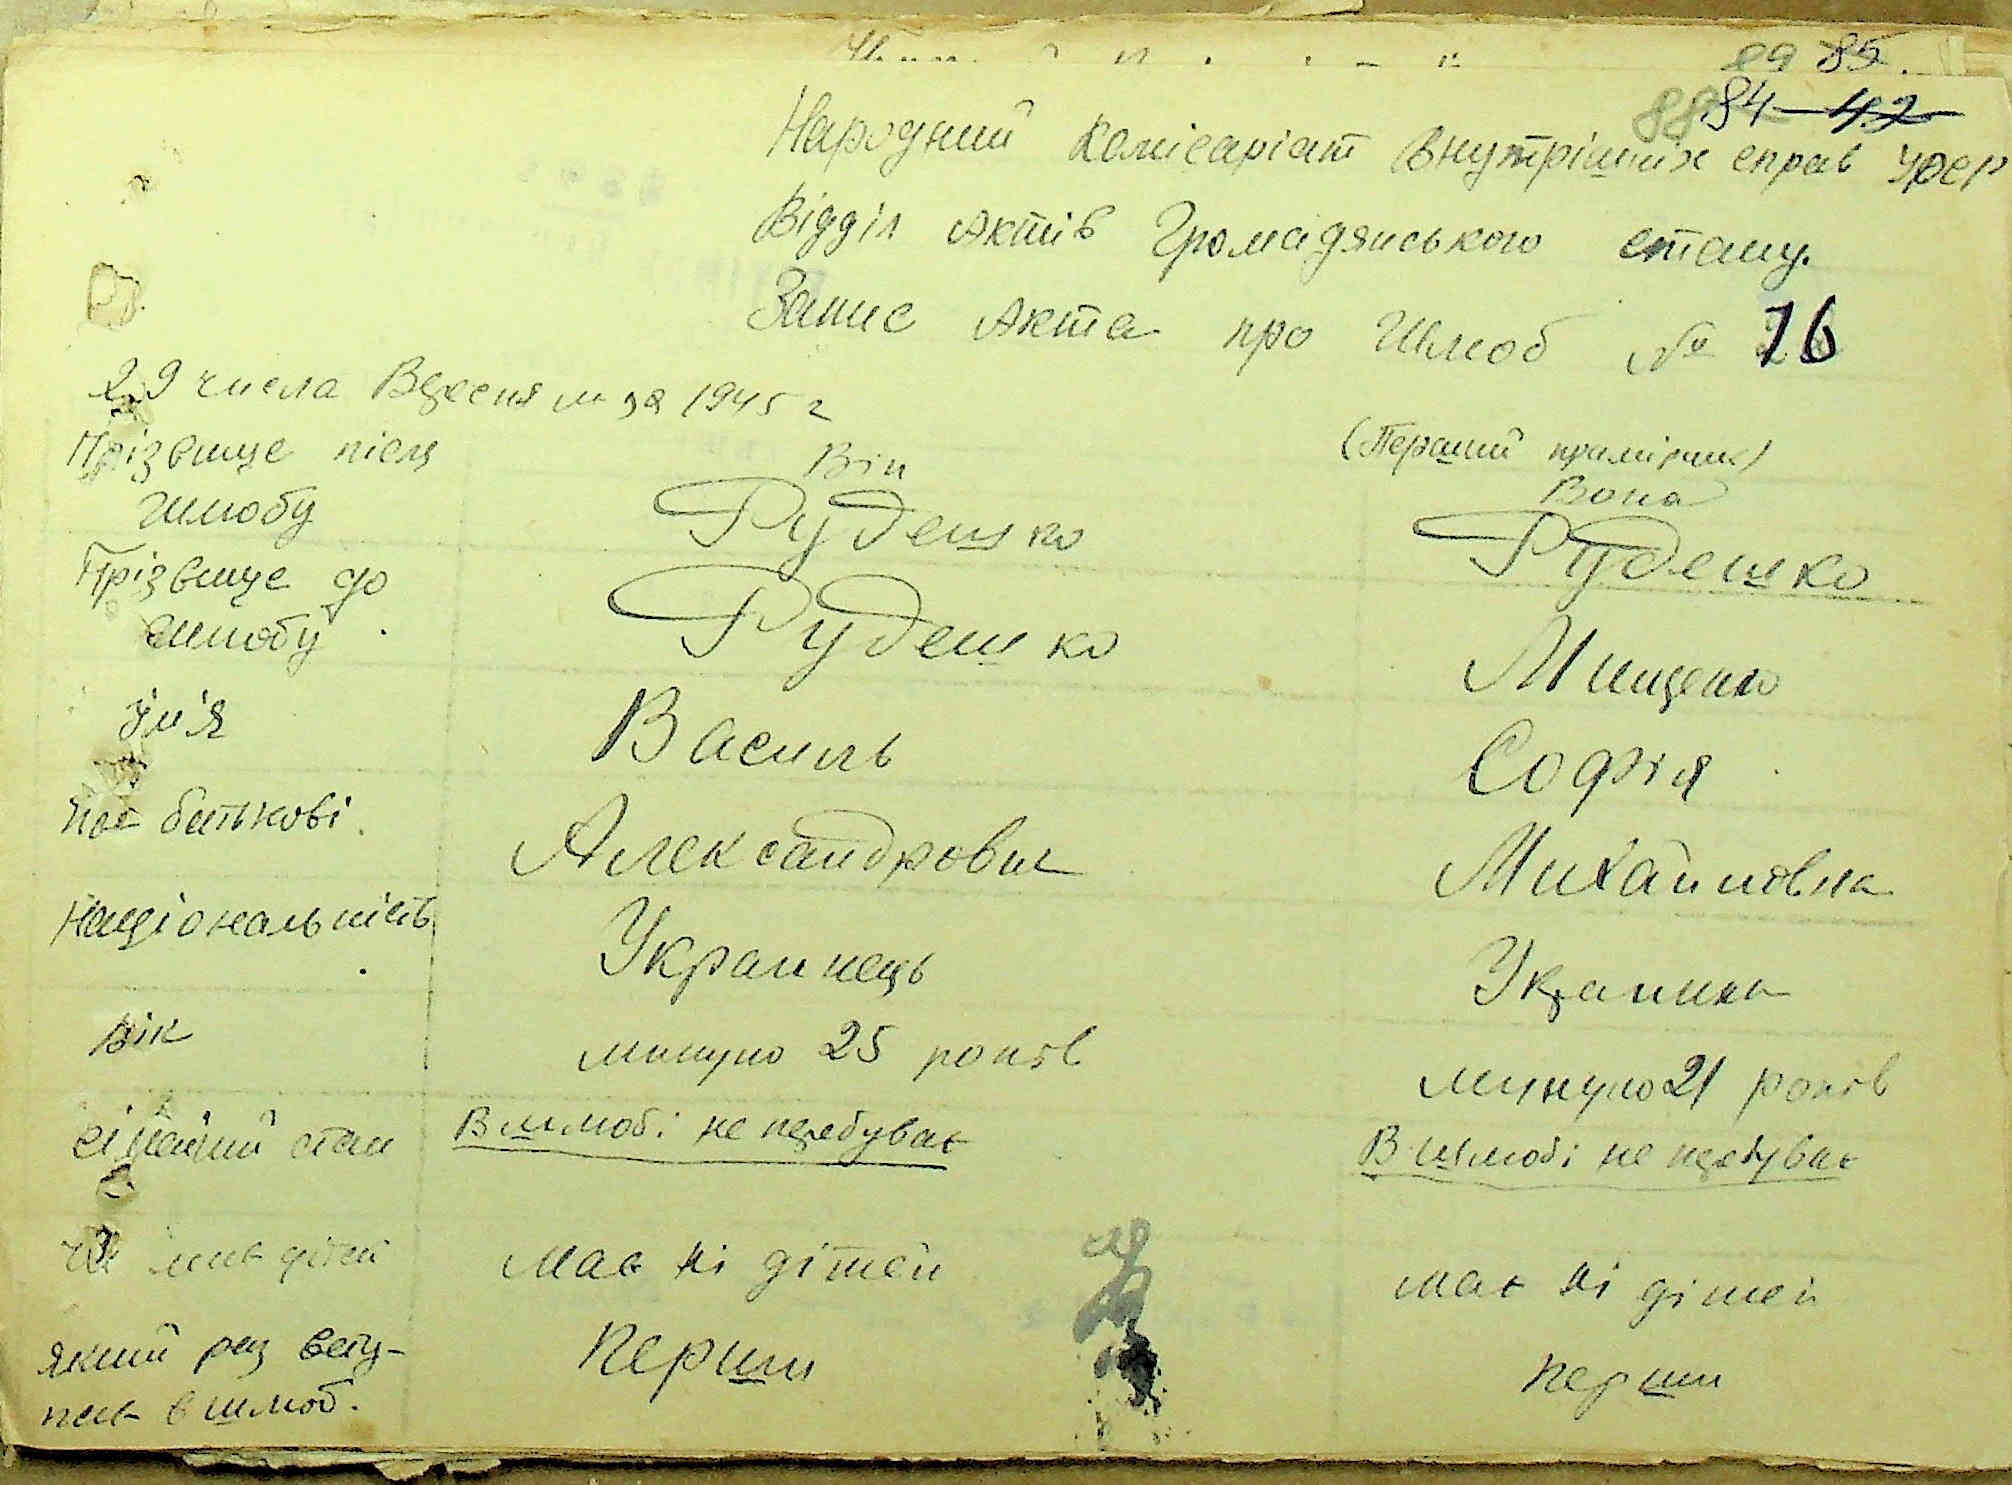 89 85.
88 84 42
Народний Комісаріат Внутрішніх справ УРСР
Відділ Актів Громадянського стану.
Запис Акта про Шлюб № 16
29 числа Вересня м-ця 1945 г
(Перший примірник)
Він Вона
Прізвище після шлюбу Рудешко Рудешко
Прізвище до шлюбу Рудешко Мищенко
Ім'я Василь Софія
По батькові. Александрович Михайловна
Національність Украинець Украинка
Вік минуло 25 років минуло 21 років
Сімейний стан В шлюбі не перебуває В шлюбі не перебуває
Чи має дітей має ні дітей має ні дітей
Який раз всту- перши перши
пає в шлюб.